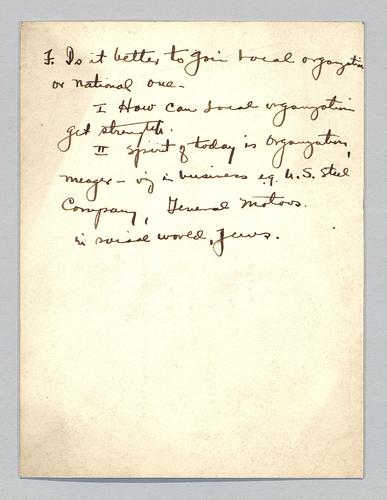 F. Is it better to join local organization
or national one.
I How can local organization
get strength.
II Spirit of today is Organization,
merger - viz in business e.g. U.S. Steel
Company, General Motors.
in social world, Jews.